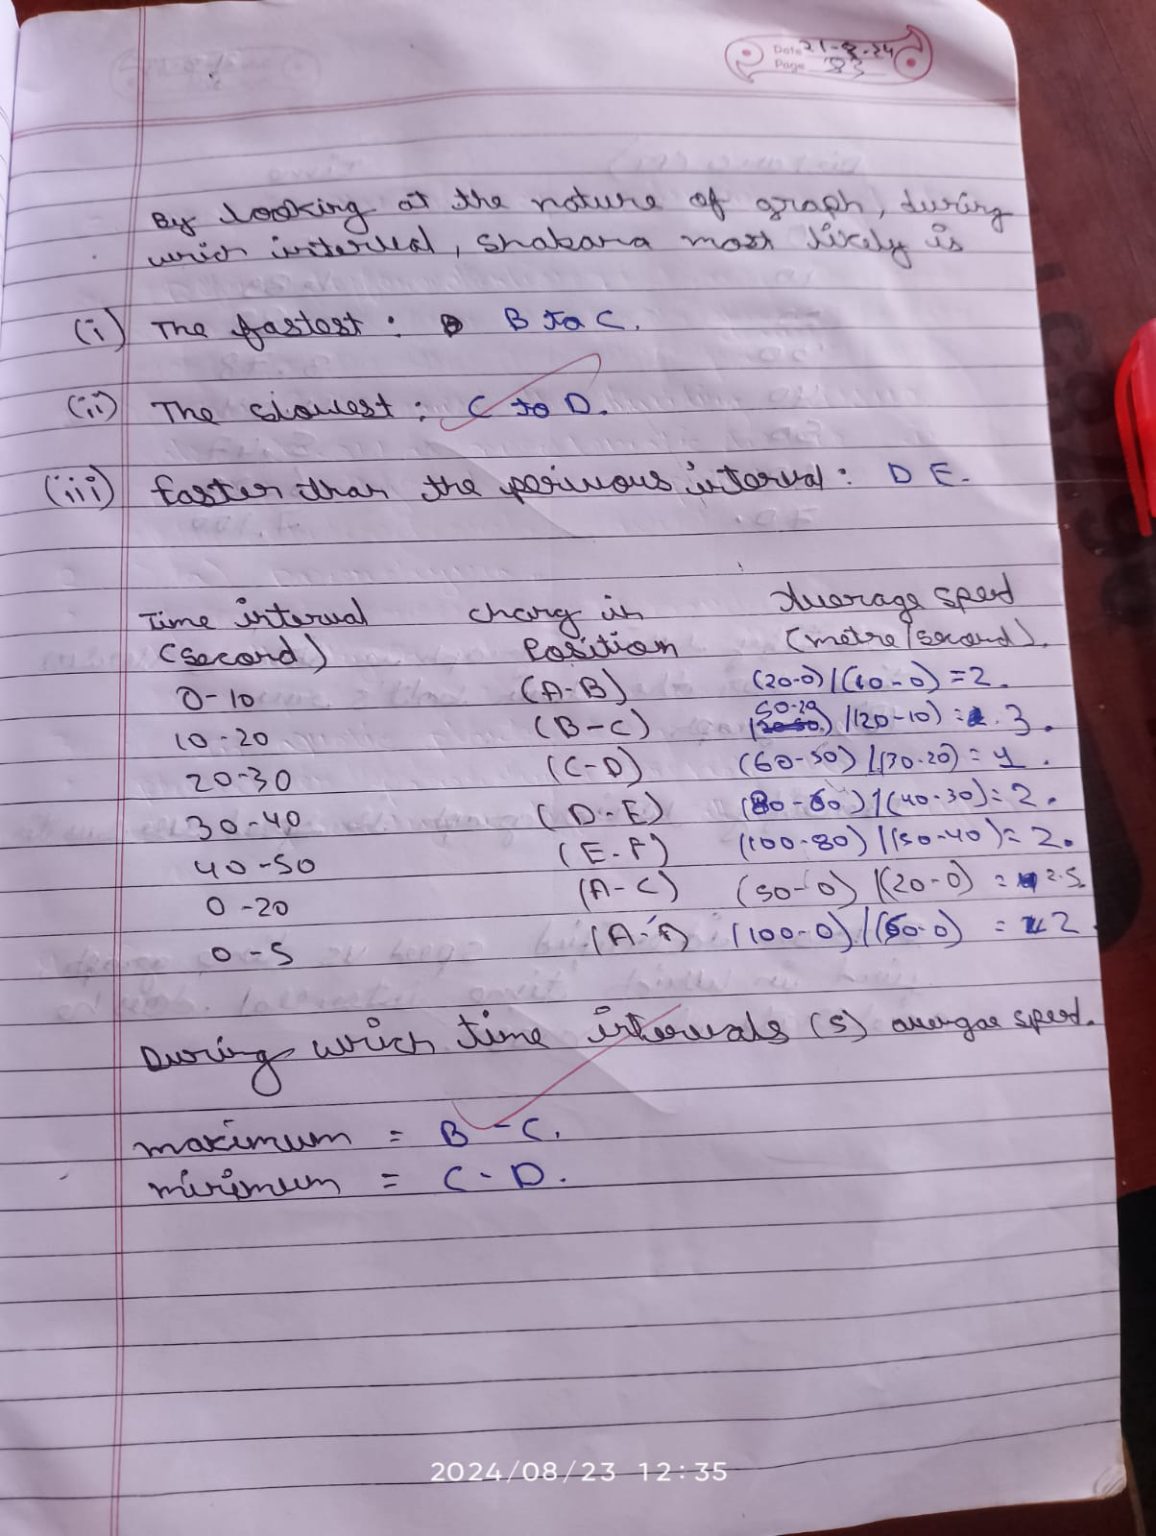 Date 21-8-24
Page 83
By looking at the nature of graph, during
which interval, Shabana most likely is
(i) The fastest : B to C.
(ii) The slowest : C to D.
(iii) faster than the perivous interval : D E.
Time interval chang in Average sped
(second) Position (metre/second).
0-10 (A-B) (20-0)/(10-0) =2.
50-20
10-20 (B-C) /(20-10) = 3.
20-30 (C-D) (60-50)/(30-20) = 1.
30-40 (D-E) (80-60)/(40-30)= 2.
40-50 (E-F) (100-80)/(50-40)= 2.
0-20 (A-C) (50-0)/(20-0) = 2.5
0-5 (A-F) (100-0)/(50-0) = 2.
During which time intervals (s) avergae sped.
maximum = B-C.
minimum = C-D.
2024/08/23 12:35